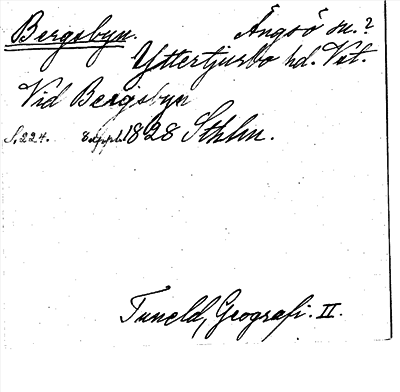 Bergsbyn. Ängsö sn.?
Yttertjurbo hd. Vstl.
Vid Bergsbyn
S. 224. 8 uppl. 1828 Sthlm.
Tuneld, Geografi. II.